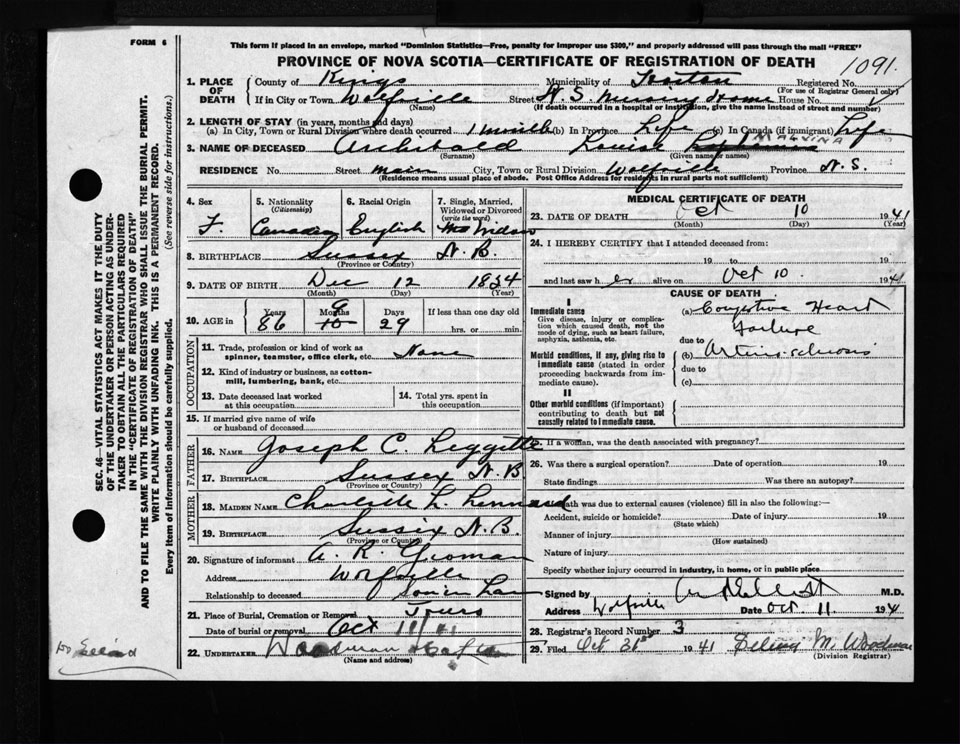 FORM 6
This form if placed in an envelope, marked "Dominion Statistics—Free, penalty for improper use $300," and properly addressed will pass through the mail "FREE"
PROVINCE OF NOVA SCOTIA—CERTIFICATE OF REGISTRATION OF DEATH
1091.
1. PLACE OF DEATH
County of Kings Municipality of Horton Registered No.
(For use of Registrar General only)
If in City or Town Wolfville Street N. S. Nursing Home House No.
(Name) (If death occurred in a hospital or institution, give the name instead of street and number)
2. LENGTH OF STAY (in years, months and days)
(a) In City, Town or Rural Division where death occurred 1 month (b) In Province Life (c) In Canada (if immigrant) Life
MALVINA
3. NAME OF DECEASED Archibald Louise
(Surname) (Given name or names)
RESIDENCE No. Street Main City, Town or Rural Division Wolfville Province N. S.
(Residence means usual place of abode. Post Office Address for residents in rural parts not sufficient)
4. Sex F.
5. Nationality (Citizenship) Canadian
6. Racial Origin English
7. Single, Married, Widowed or Divorced (write the word) Widow
8. BIRTHPLACE Sussex N. B.
(Province or Country)
9. DATE OF BIRTH Dec 12 1854
(Month) (Day) (Year)
10. AGE in Years Months Days If less than one day old
86 10 9 29 hrs. or min.
OCCUPATION
11. Trade, profession or kind of work as spinner, teamster, office clerk, etc. None
12. Kind of industry or business, as cotton-mill, lumbering, bank, etc.
13. Date deceased last worked at this occupation
14. Total yrs. spent in this occupation
15. If married give name of wife or husband of deceased
FATHER
16. NAME Joseph C. Leggette
17. BIRTHPLACE Sussex N. B
(Province or Country)
MOTHER
18. MAIDEN NAME Charlotte L.
19. BIRTHPLACE Sussex N. B.
(Province or Country)
20. Signature of informant A. K.
Address Wolfville
Relationship to deceased Son in Law
21. Place of Burial, Cremation or Removal
Date of burial or removal Oct 11/41
22. UNDERTAKER Woodman
(Name and address)
MEDICAL CERTIFICATE OF DEATH
23. DATE OF DEATH Oct 10 1941
(Month) (Day) (Year)
24. I HEREBY CERTIFY that I attended deceased from:
19 to 19
and last saw h er alive on Oct 10 1941
CAUSE OF DEATH
I
Immediate cause
Give disease, injury or complication which caused death, not the mode of dying, such as heart failure, asphyxia, asthenia, etc.
(a) Congestive Heart Failure
due to
Morbid conditions, if any, giving rise to immediate cause (stated in order proceeding backwards from immediate cause).
(b)
due to
(c)
II
Other morbid conditions (if important) contributing to death but not causally related to immediate cause.
25. If a woman, was the death associated with pregnancy?
26. Was there a surgical operation? Date of operation 19
State findings Was there an autopsy?
death was due to external causes (violence) fill in also the following:—
Accident, suicide or homicide? Date of injury 19
(State which)
Manner of injury
(How sustained)
Nature of injury
Specify whether injury occurred in industry, in home, or in public place
Signed by M.D.
Address Wolfville Date Oct. 11 194
28. Registrar's Record Number 3
29. Filed Oct 31st 1941 M. Woodman
(Division Registrar)
SEC. 46—VITAL STATISTICS ACT MAKES IT THE DUTY
OF THE UNDERTAKER OR PERSON ACTING AS UNDER-
TAKER TO OBTAIN ALL THE PARTICULARS REQUIRED
IN THE "CERTIFICATE OF REGISTRATION OF DEATH"
AND TO FILE THE SAME WITH THE DIVISION REGISTRAR WHO SHALL ISSUE THE BURIAL PERMIT.
WRITE PLAINLY WITH UNFADING INK. THIS IS A PERMANENT RECORD.
Every item of Information should be carefully supplied. (See reverse side for instructions.)